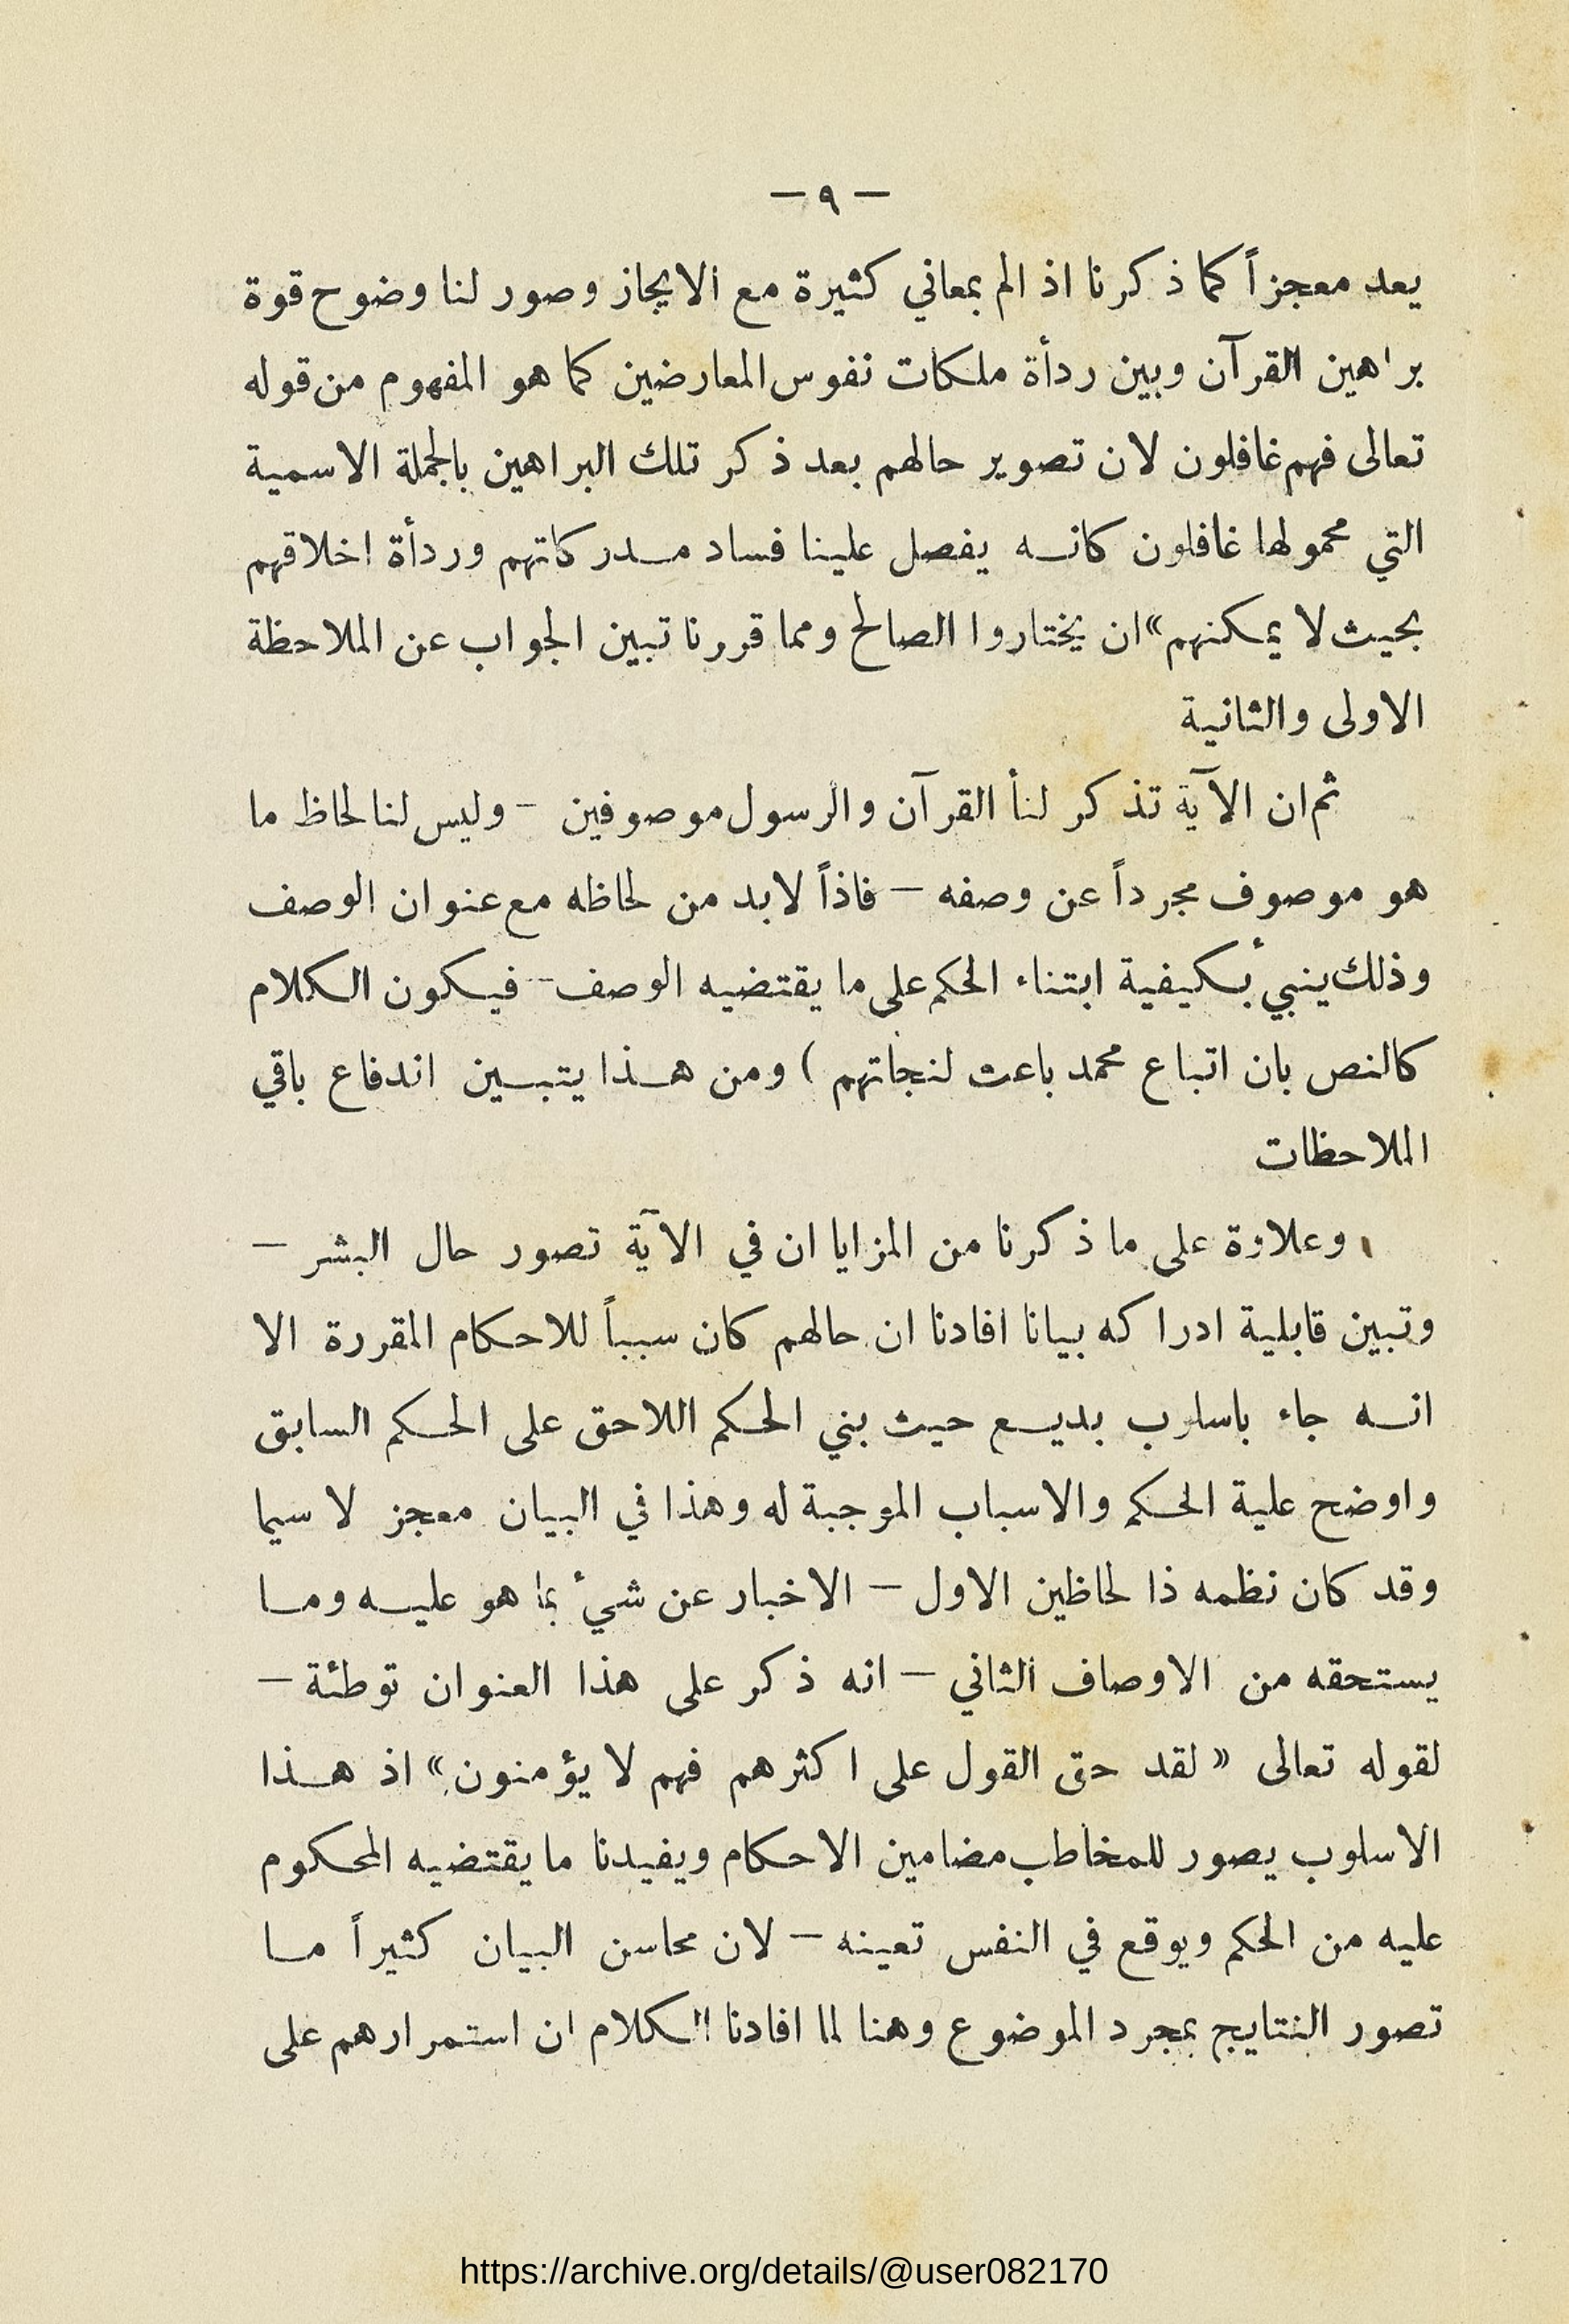 — ٩ —
يعد معجزاً كما ذكرنا اذ الم بمعاني كثيرة مع الايجاز وصور لنا وضوح قوة
براهين القرآن وبين ردأة ملكات نفوس المعارضين كما هو المفهوم من قوله
تعالى فهم غافلون لان تصوير حالهم بعد ذكر تلك البراهين بالجملة الاسمية
التي محمولها غافلون كانه يفصل علينا فساد مدركاتهم وردأة اخلاقهم
بحيث لا يمكنهم» ان يختاروا الصالح ومما قررنا تبين الجواب عن الملاحظة
الاولى والثانية
ثم ان الآية تذكر لنأ القرآن والرسول موصوفين – وليس لنا لحاظ ما
هو موصوف مجرداً عن وصفه – فاذاً لابد من لحاظه مع عنوان الوصف
وذلك ينبئ بكيفية ابتناء الحكم على ما يقتضيه الوصف – فيكون الكلام
كالنص بان اتباع محمد باعث لنجاتهم ) ومن هذا يتبين اندفاع باقي
الملاحظات
وعلاوة على ما ذكرنا من المزايا ان في الآية تصور حال البشر –
وتبين قابلية ادراكه بيانا افادنا ان حالهم كان سبباً للاحكام المقررة الا
انه جاء باسلوب بديع حيث بني الحكم اللاحق على الحكم السابق
واوضح علية الحكم والاسباب الموجبة له وهذا في البيان معجز لا سيما
وقد كان نظمه ذا لحاظين الاول – الاخبار عن شئ بما هو عليه وما
يستحقه من الاوصاف الثاني – انه ذكر على هذا العنوان توطئة –
لقوله تعالى « لقد حق القول على اكثرهم فهم لا يؤمنون» اذ هذا
الاسلوب يصور للمخاطب مضامين الاحكام ويفيدنا ما يقتضيه المحكوم
عليه من الحكم ويوقع في النفس تعينه – لان محاسن البيان كثيراً ما
تصور النتايج بمجرد الموضوع وهنا لما افادنا الكلام ان استمرارهم على
https://archive.org/details/@user082170